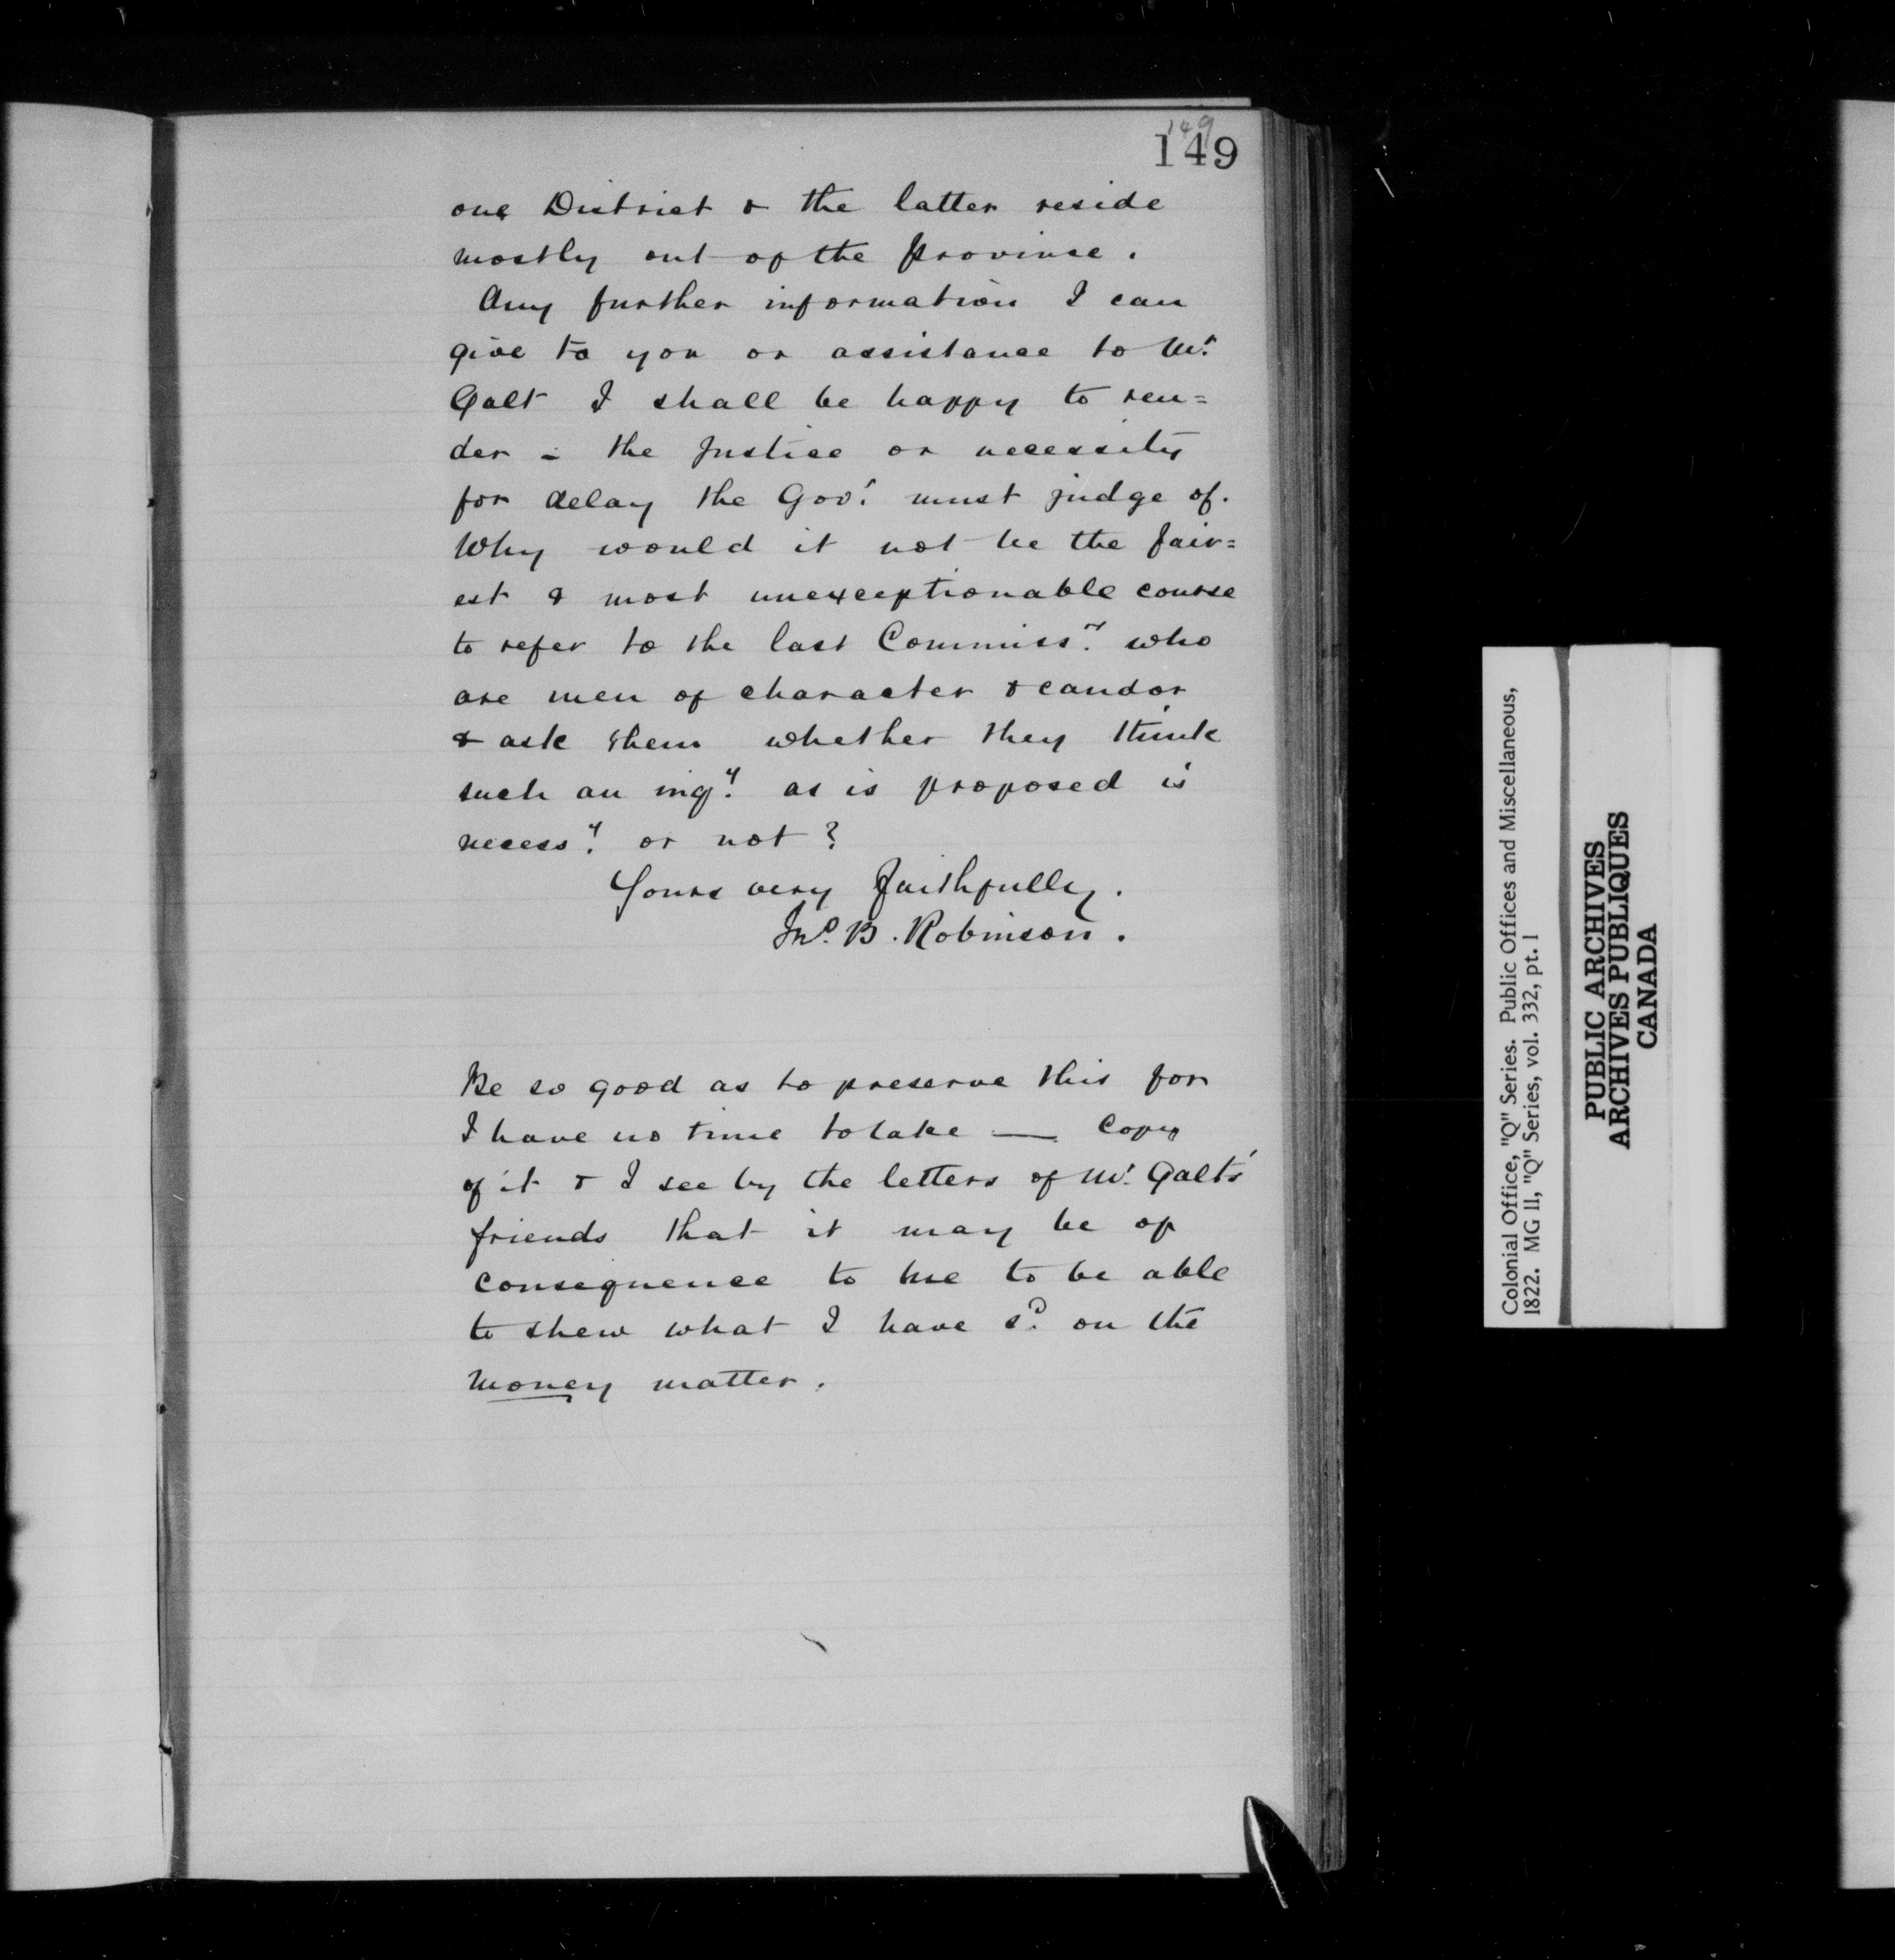 149
149
one District & the latter reside
mostly out of the Province.
Any further information I can
give to you or assistance to Mr.
Galt I shall be happy to ren=
der - the Justice or necessity
for delay the Govt. must judge of.
Why would it not be the fair=
est & most unexceptionable course
to refer to the last Commissrs. who
are men of character & candor
& ask them whether they think
such an inqy. as is proposed is
necessy. or not?
Yours very Faithfully.
Jno. B. Robinson.
Be so good as to preserve this for
I have no time to take — Copy
of it & I see by the letters of Mr. Galt's
friends that it may be of
consequence to me to be able
to shew what I have sd. on the
money matter.
Colonial Office, "Q" Series. Public Offices and Miscellaneous,
1822. MG 11, "Q" Series, vol. 332, pt. 1
PUBLIC ARCHIVES
ARCHIVES PUBLIQUES
CANADA